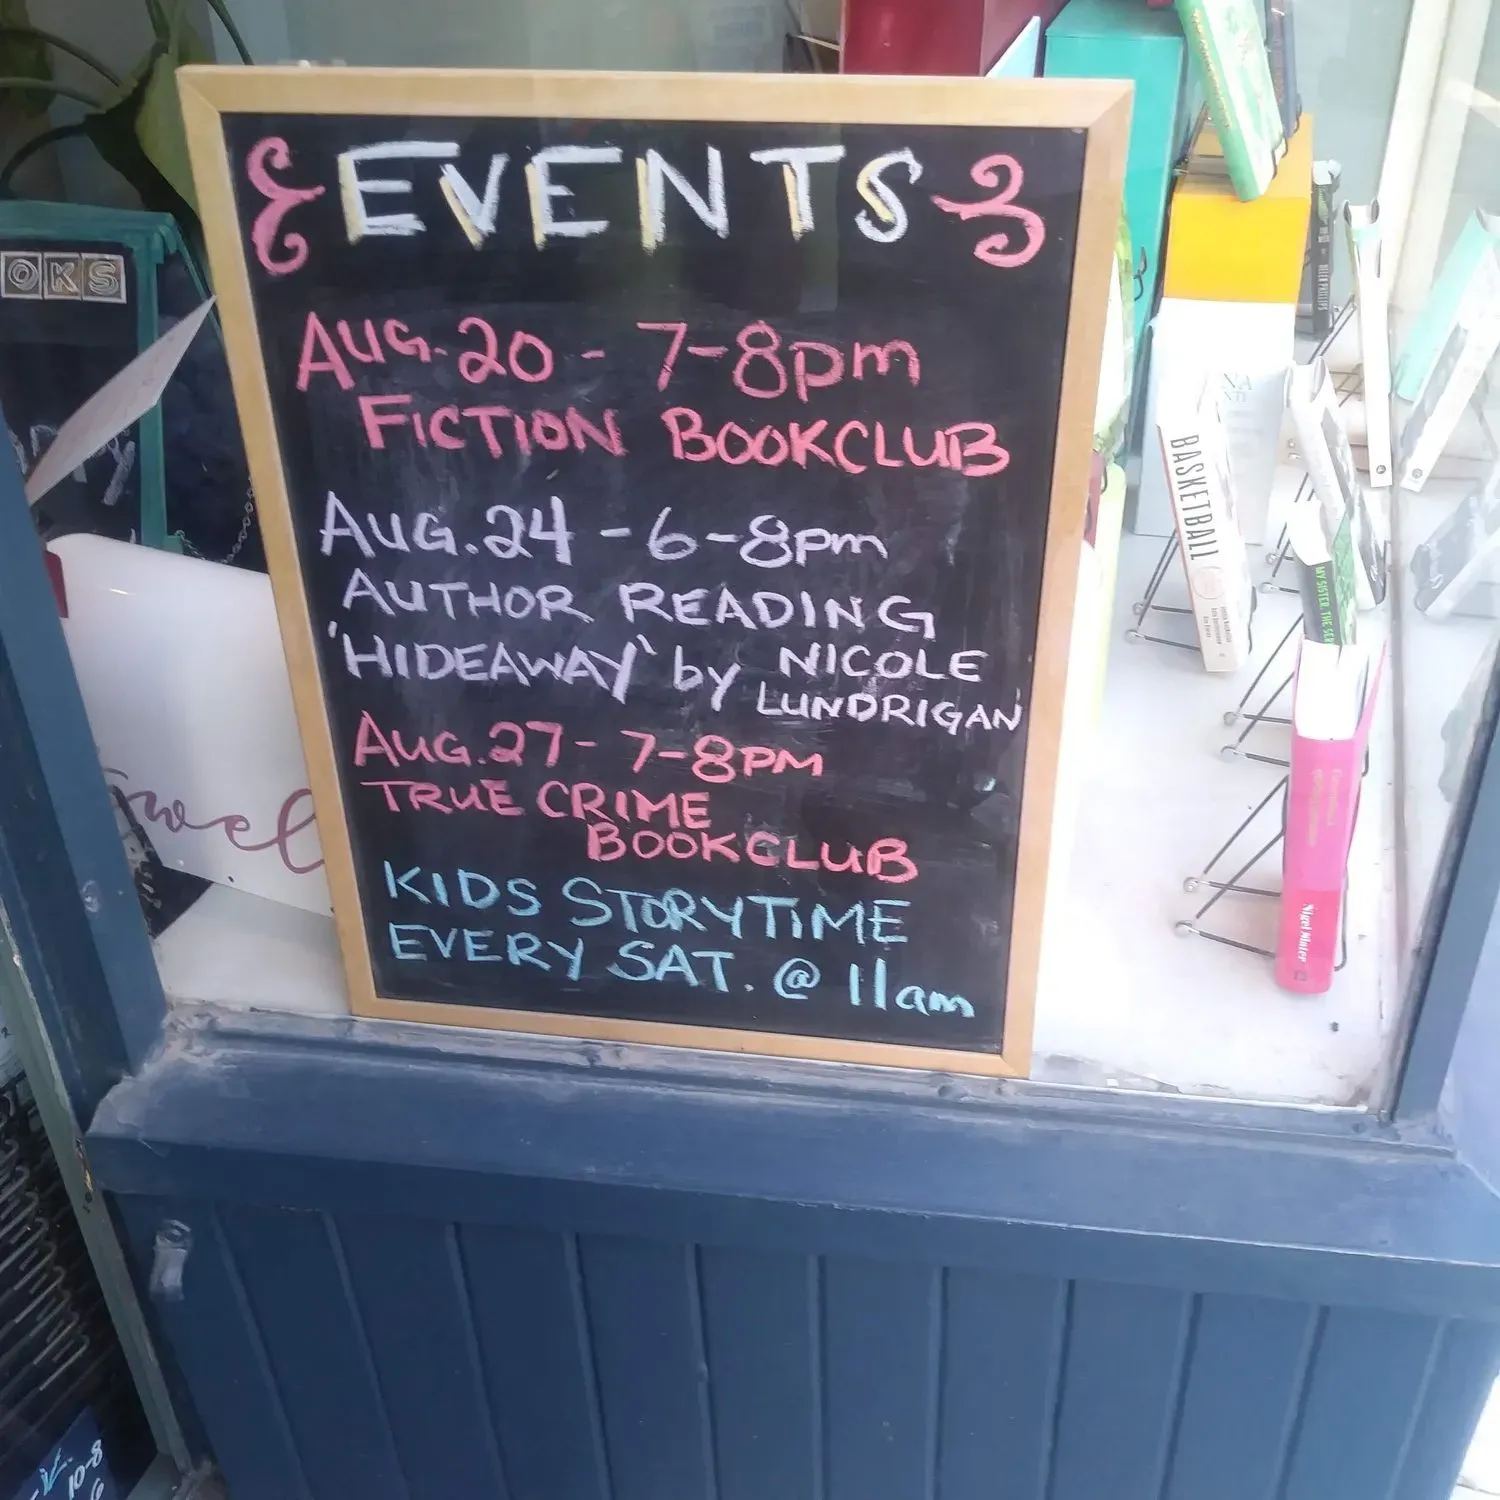 EVENTS
AUG. 20 - 7-8pm
FICTION BOOKCLUB
AUG. 24 - 6-8pm
AUTHOR READING
'HIDEAWAY' by NICOLE
LUNDRIGAN
AUG. 27 - 7-8PM
TRUE CRIME
BOOKCLUB
KIDS STORYTIME
EVERY SAT. @ 11am
OKS
BASKETBALL
MY SISTER, THE SER
Nigel Slater
10-8